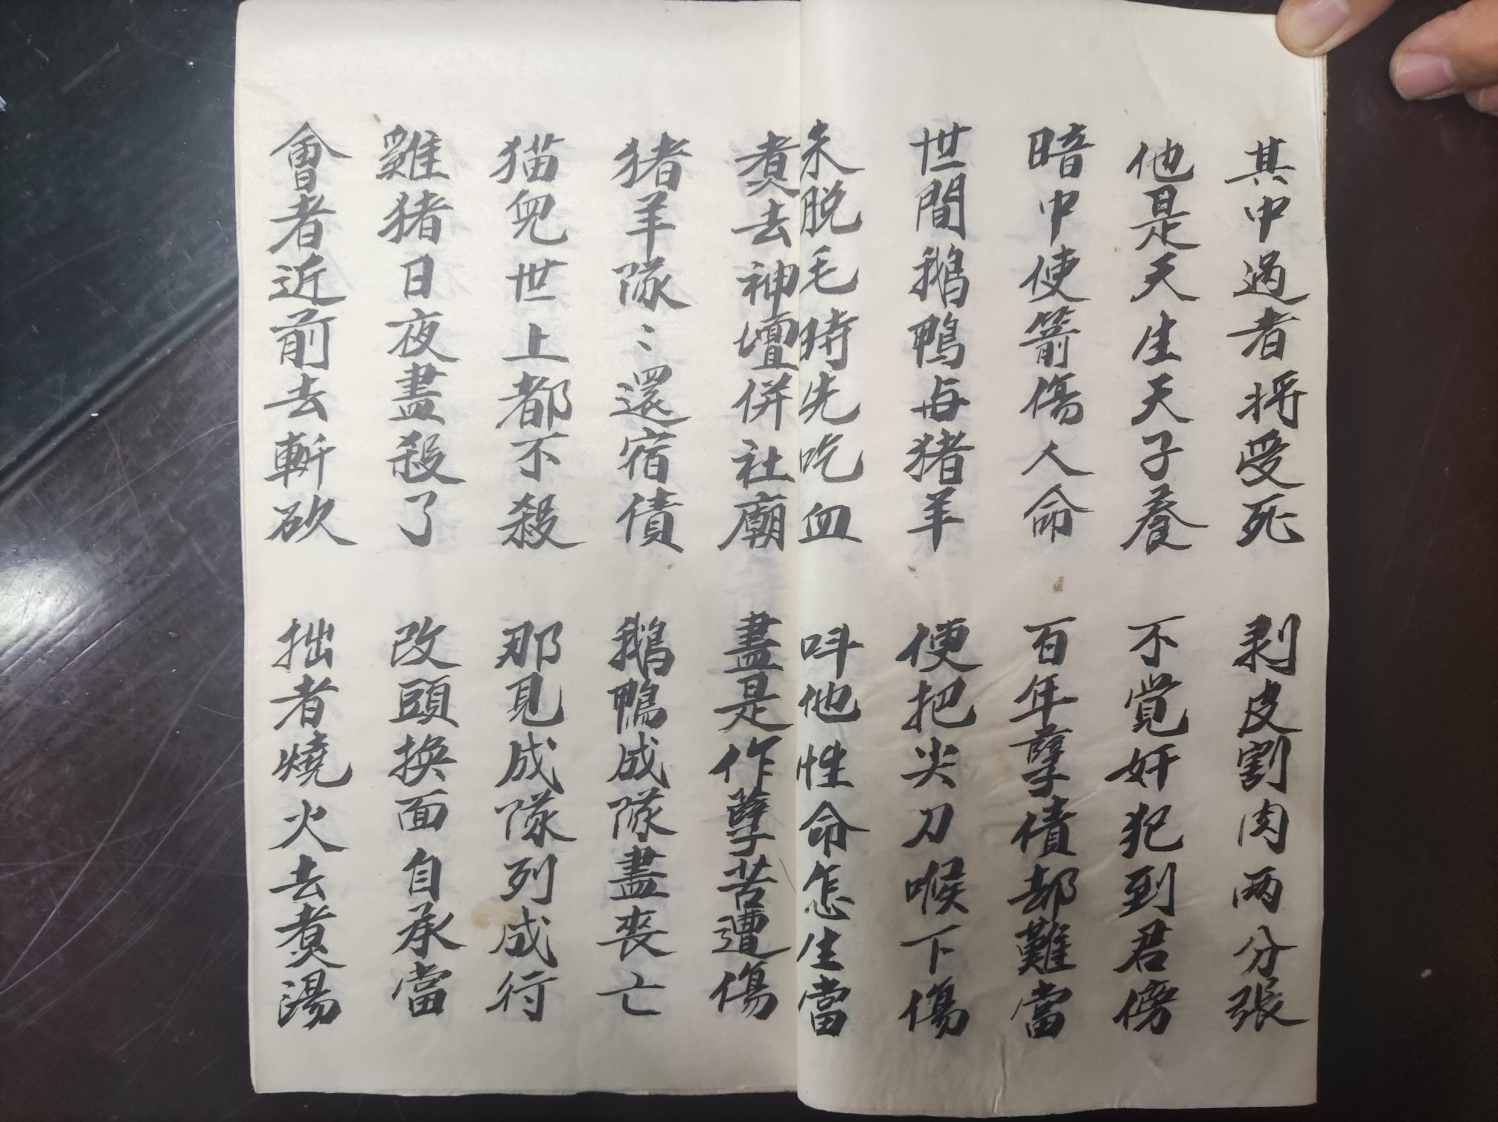 其中過者将受死 剥皮割肉两分張
他是天生天子養 不覚奸犯到君傍
暗中使箭傷人命 百年孽債却難當
世間鵝鴨与猪羊 便把尖刀喉下傷
未脱毛時先吃血 呌他性命怎生當
煑去神壇併社廟 盡是作孽苦遭傷
猪羊隊〻還宿債 鵝鴨成隊盡丧亡
猫兒世上都不殺 那見成隊列成行
雞猪日夜盡殺了 改頭换面自承當
會者近前去斬砍 拙者燒火去煑湯